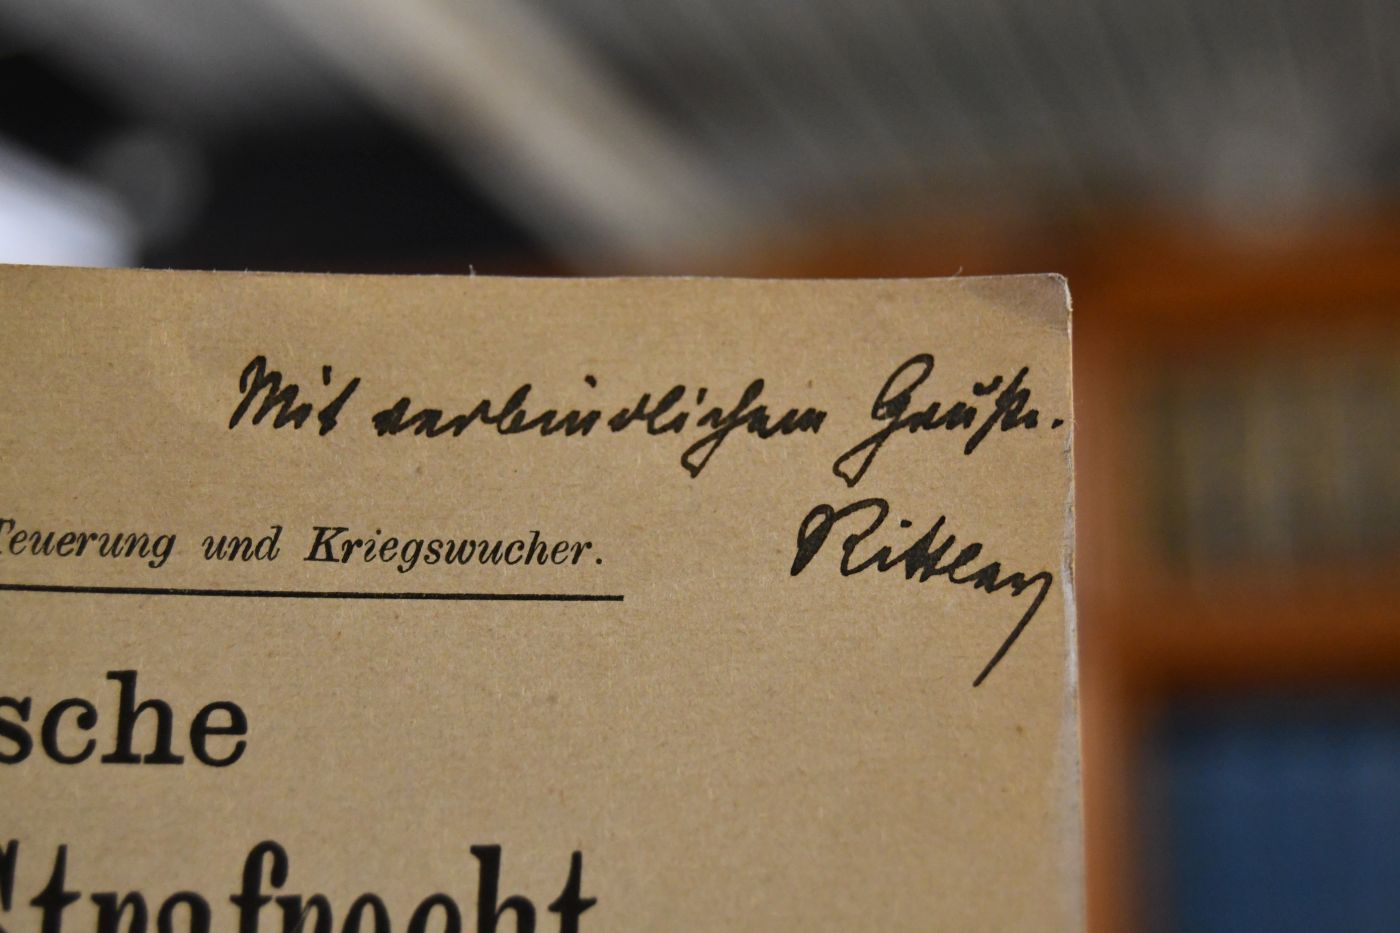 Mit verbindlichem Gruße.
Rittler
Teuerung und Kriegswucher.
sche
Strafrecht